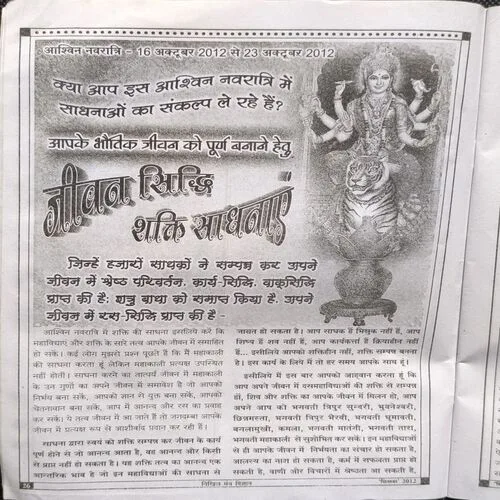 आश्विन नवरात्रि - 16 अक्टूबर 2012 से 23 अक्टूबर 2012
क्या आप इस आश्विन नवरात्रि में
साधनाओं का संकल्प ले रहे हैं?
आपके भौतिक जीवन को पूर्ण बनाने हेतु
जीवन सिद्धि
शक्ति साधनाएं
जिन्हें हजारों साधकों ने सम्पन्न कर अपने
जीवन में श्रेष्ठ परिवर्तन, कार्य-सिद्धि, वाक्‌सिद्धि
प्राप्त की है; शत्रु बाधा को समाप्त किया है, अपने
जीवन में रस-सिद्धि प्राप्त की है -
आश्विन नवरात्रि में शक्ति की साधना इसलिये करें कि
महाविद्याएं और शक्ति के सारे तत्व आपके जीवन में समाहित
हो सकें। कई लोग मुझसे प्रश्न पूछते हैं कि मैं महाकाली
की साधना करता हूं लेकिन महाकाली प्रत्यक्ष उपस्थित
नहीं होती। साधना करने का तात्पर्य जीवन में महाकाली
के उन गुणों का अपने जीवन में समावेश है जो आपको
निर्भय बना सकें, आपको ज्ञान से युक्त बना सकें, आपको
चेतनावान बना सकें, आप में आनन्द और रस का प्रवाह
कर सकें। ये तत्व जीवन में आ जाते हैं तो जगदम्बा आपके
जीवन में प्रत्यक्ष रूप से आशीर्वाद प्रदान कर रही हैं।
साधना द्वारा स्वयं को शक्ति सम्पन्न कर जीवन के कार्य
पूर्ण होने से जो आनन्द आता है, वह आनन्द और किसी
से प्राप्त नहीं हो सकता है। यह शक्ति तत्व का आनन्द एक
आन्तरिक भाव है जो इन महाविद्याओं की साधना से
जाग्रत हो सकता है। आप साधक हैं भिक्षुक नहीं हैं, आप
शिष्य हैं शव नहीं हैं, आप कार्यकर्त्ता हैं क्रियाहीन नहीं
हैं... इसीलिये आपको शक्तिहीन नहीं, शक्ति सम्पन्न बनना
है। इस कार्य के लिये मैं तो हर समय आपके साथ हूं।
इसीलिये मैं इस बार आपको आह्वान करता हूं कि
आप अपने जीवन में दसमहाविद्याओं की शक्ति से सम्पन्न
हों, शिव और शक्ति का आपके जीवन में मिलन हो, आप
अपने आप को भगवती त्रिपुर सुन्दरी, भुवनेश्वरी,
छिन्नमस्ता, भगवती त्रिपुर भैरवी, भगवती धूमावती,
बगलामुखी, कमला, भगवती मातंगी, भगवती तारा,
भगवती महाकाली से सुशोभित कर सकें। इन महाविद्याओं
से ही आपके जीवन में निर्भयता का संचार हो सकता है,
आलस्य का नाश हो सकता है, कर्म में सफलता प्राप्त हो
सकती है, वाणी और विचारों में श्रेष्ठता आ सकती है,
26
निखिल मंत्र विज्ञान
2012